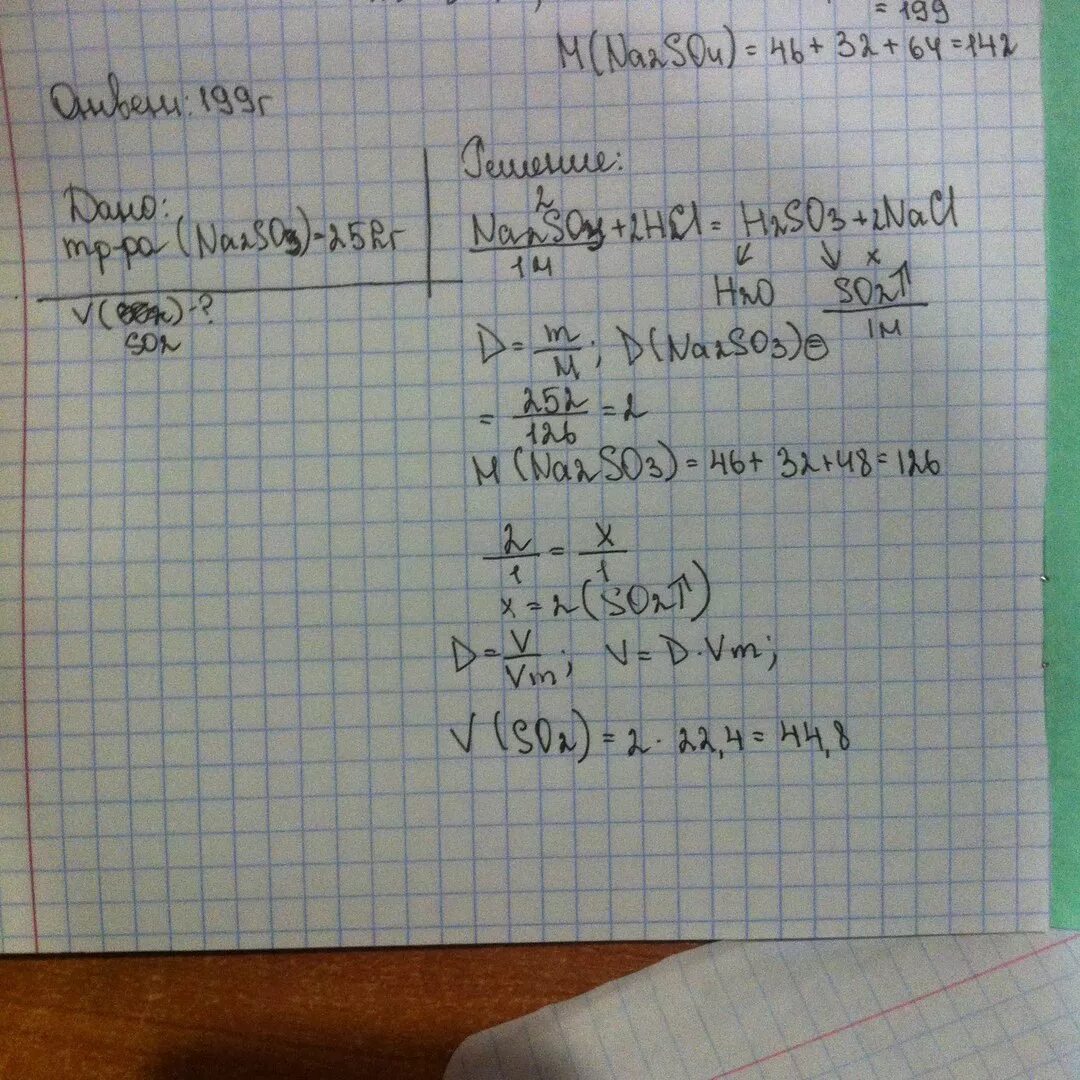 = 199
M(Na2SO4) = 46 + 32 + 64 = 142
Ответ: 199г
Дано:
mр-ра (Na2SO3) = 252г
V( ) - ?
SO2
Решение:
2
Na2SO3 + 2HCl = H2SO3 + 2NaCl
1M
↙ ↘ x
H2O SO2↑
1M
D = m/M ; D(Na2SO3) =
= 252/126 = 2
M (Na2SO3) = 46 + 32 + 48 = 126
2/1 = x/1
x = 2 (SO2↑)
D = V/Vm ; V = D · Vm ;
V (SO2) = 2 · 22,4 = 44,8